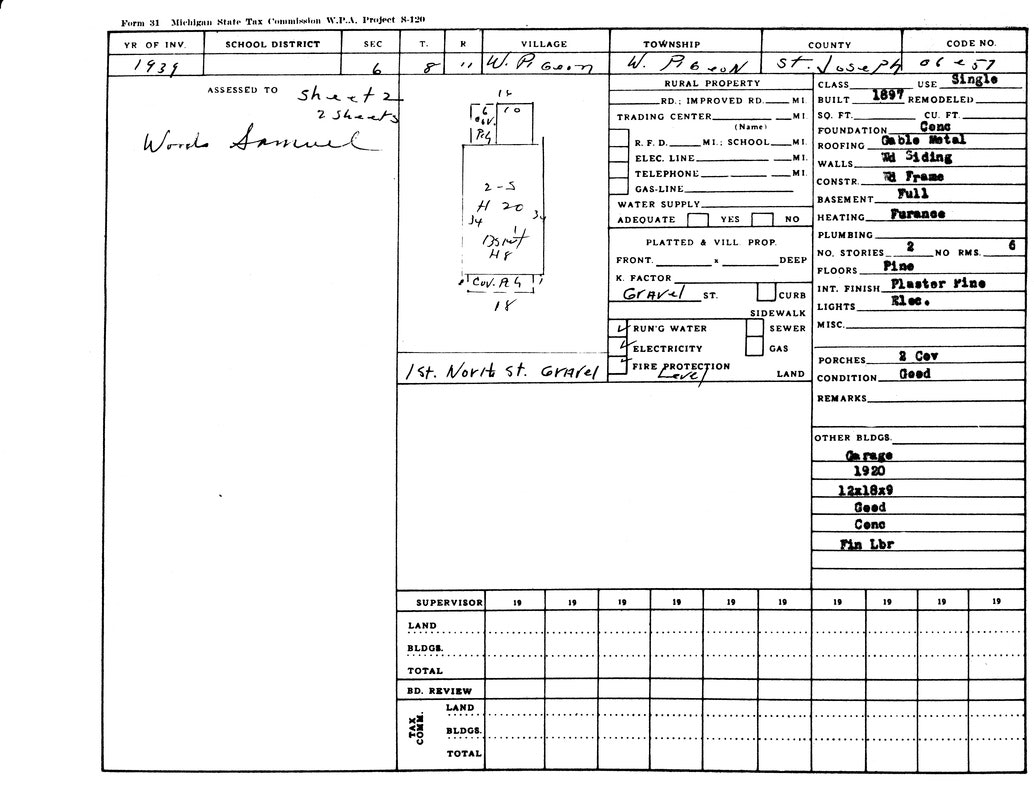 Form 31 Michigan State Tax Commission W.P.A. Project S-120
YR OF INV. SCHOOL DISTRICT SEC T. R VILLAGE TOWNSHIP COUNTY CODE NO.
1939 6 8 11 W. PIGeon W. PIGeoN ST. JosePH
ASSESSED TO Sheet 2
2 Sheets
Woods Samuel
6 10
Cov.
PCH
2-S
H 20
34 34
Bsmt
H8
Cov. PCH
18
1St. North St. GrAvel
RURAL PROPERTY
RD.; IMPROVED RD. MI.
TRADING CENTER MI.
(Name)
R. F. D. MI.; SCHOOL MI.
ELEC. LINE MI.
TELEPHONE MI.
GAS-LINE
WATER SUPPLY
ADEQUATE YES NO
PLATTED & VILL PROP.
FRONT. x DEEP
K. FACTOR
GrAvel ST. CURB
SIDEWALK
RUN'G WATER SEWER
ELECTRICITY GAS
FIRE PROTECTION
Level LAND
CLASS USE Single
BUILT 1897 REMODELED
SQ. FT. CU. FT.
FOUNDATION Conc
ROOFING Gable Metal
WALLS Wd Siding
CONSTR. Wd Frame
BASEMENT Full
HEATING Furance
PLUMBING
NO. STORIES 2 NO RMS. 6
FLOORS Pine
INT. FINISH Plaster Pine
LIGHTS Elec.
MISC.
PORCHES 2 Cov
CONDITION Good
REMARKS
OTHER BLDGS.
Garage
1920
12x18x9
Good
Conc
Fin Lbr
SUPERVISOR 19 19 19 19 19 19 19 19 19 19
LAND
BLDGS.
TOTAL
BD. REVIEW
TAX COMM.
LAND
BLDGS.
TOTAL